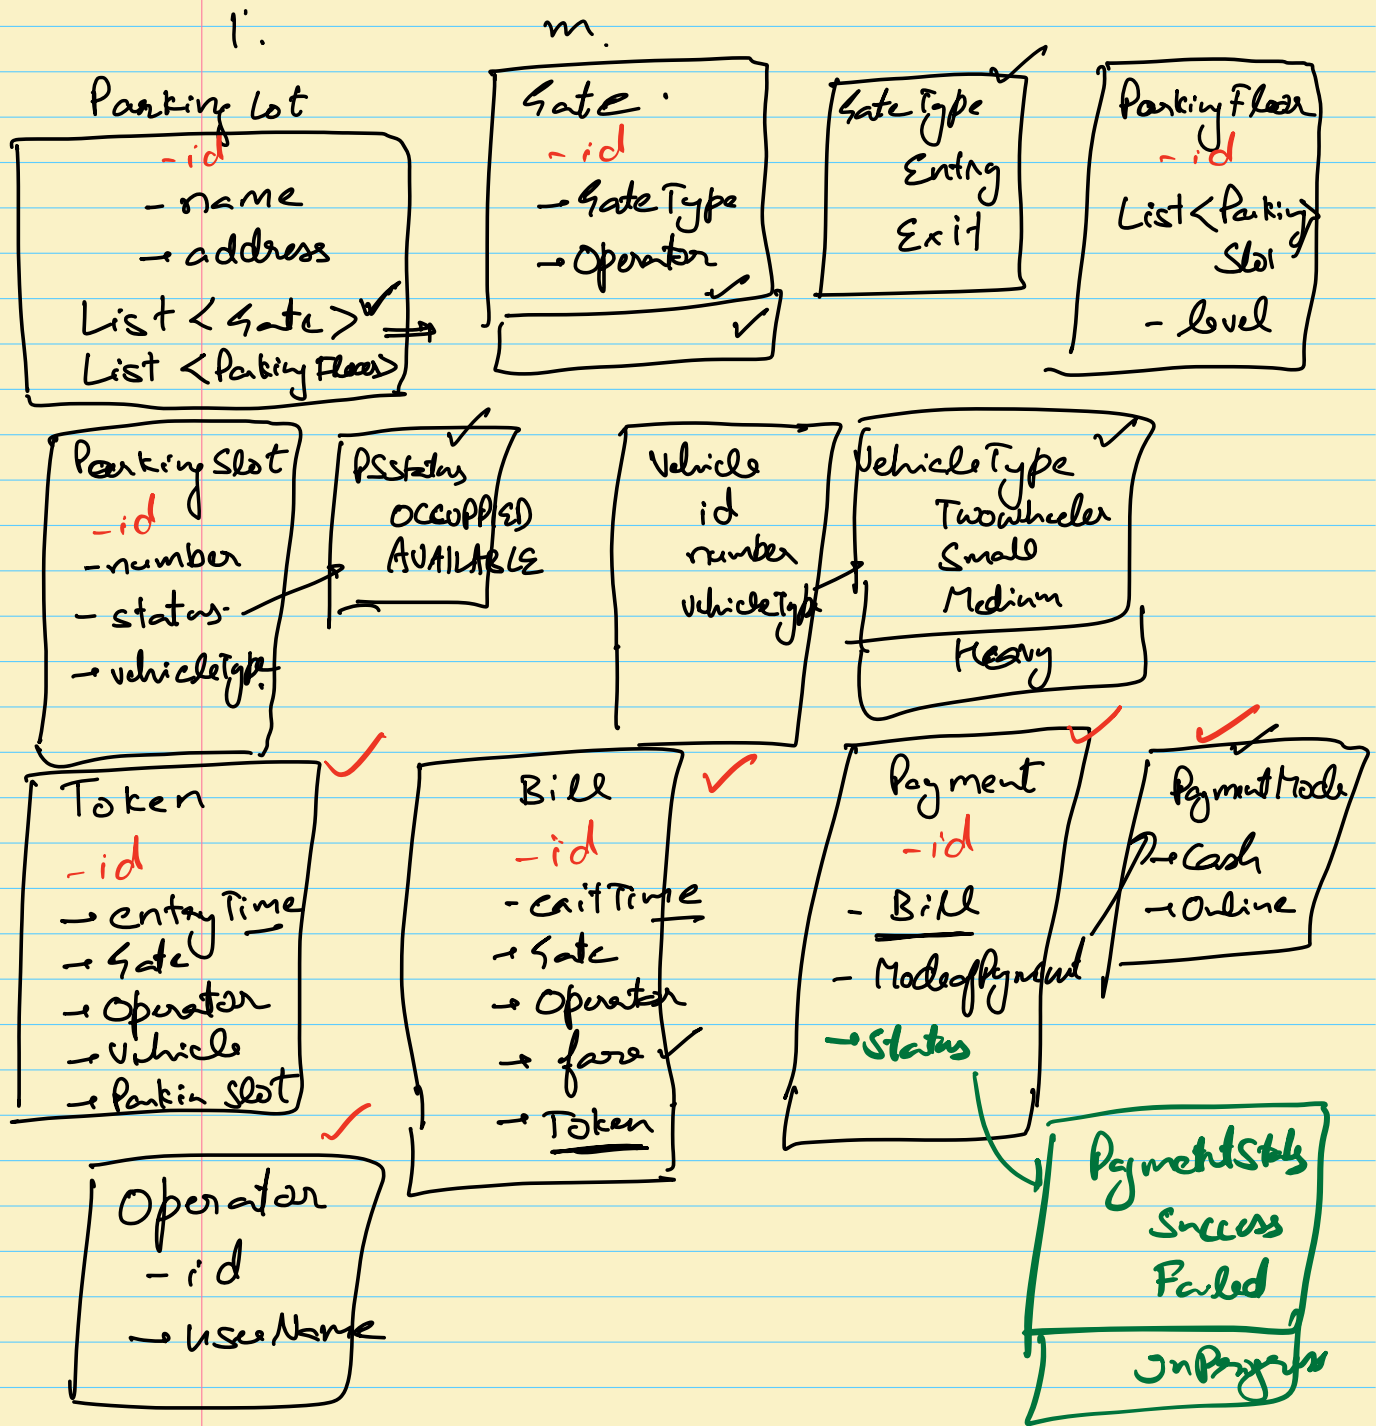 1:
m.
Parking Lot
- id
- name
- address
List <Gate>
List <ParkingFloor>
Gate
- id
- GateType
- Operator
GateType
Entry
Exit
ParkingFloor
- id
List <Parking
Slot>
- level
Parking Slot
- id
- number
- status
- vehicleType
PSStatus
OCCUPPIED
AVAILABLE
Vehicle
id
number
vehicleType
VehicleType
Twowheeler
Small
Medium
Heavy
Token
- id
- entryTime
- Gate
- Operator
- Vehicle
- Parkin Slot
Bill
- id
- exitTime
- Gate
- Operator
- fare
- Token
Payment
- id
- Bill
- ModeofPayment
- Status
PaymentMode
- Cash
- Online
Operator
- id
- userName
PaymentStatus
Success
Failed
InProgress